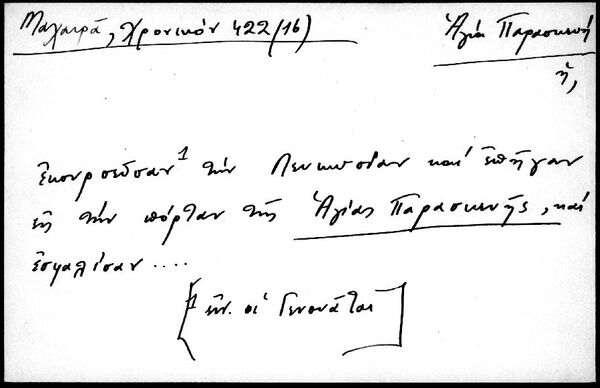 Μαχαιρά, Χρονικόν 422 (16)
Ἁγία Παρασκευή
ἡ,
Ἐκουρσεῦσαν¹ τὴν Λευκωσίαν καὶ ἐπῆγαν
εἰς τὴν πόρταν τῆς Ἁγίας Παρασκευῆς, καὶ
ἐσφαλίσαν ....
[1 ἐν. οἱ Γενουάται]